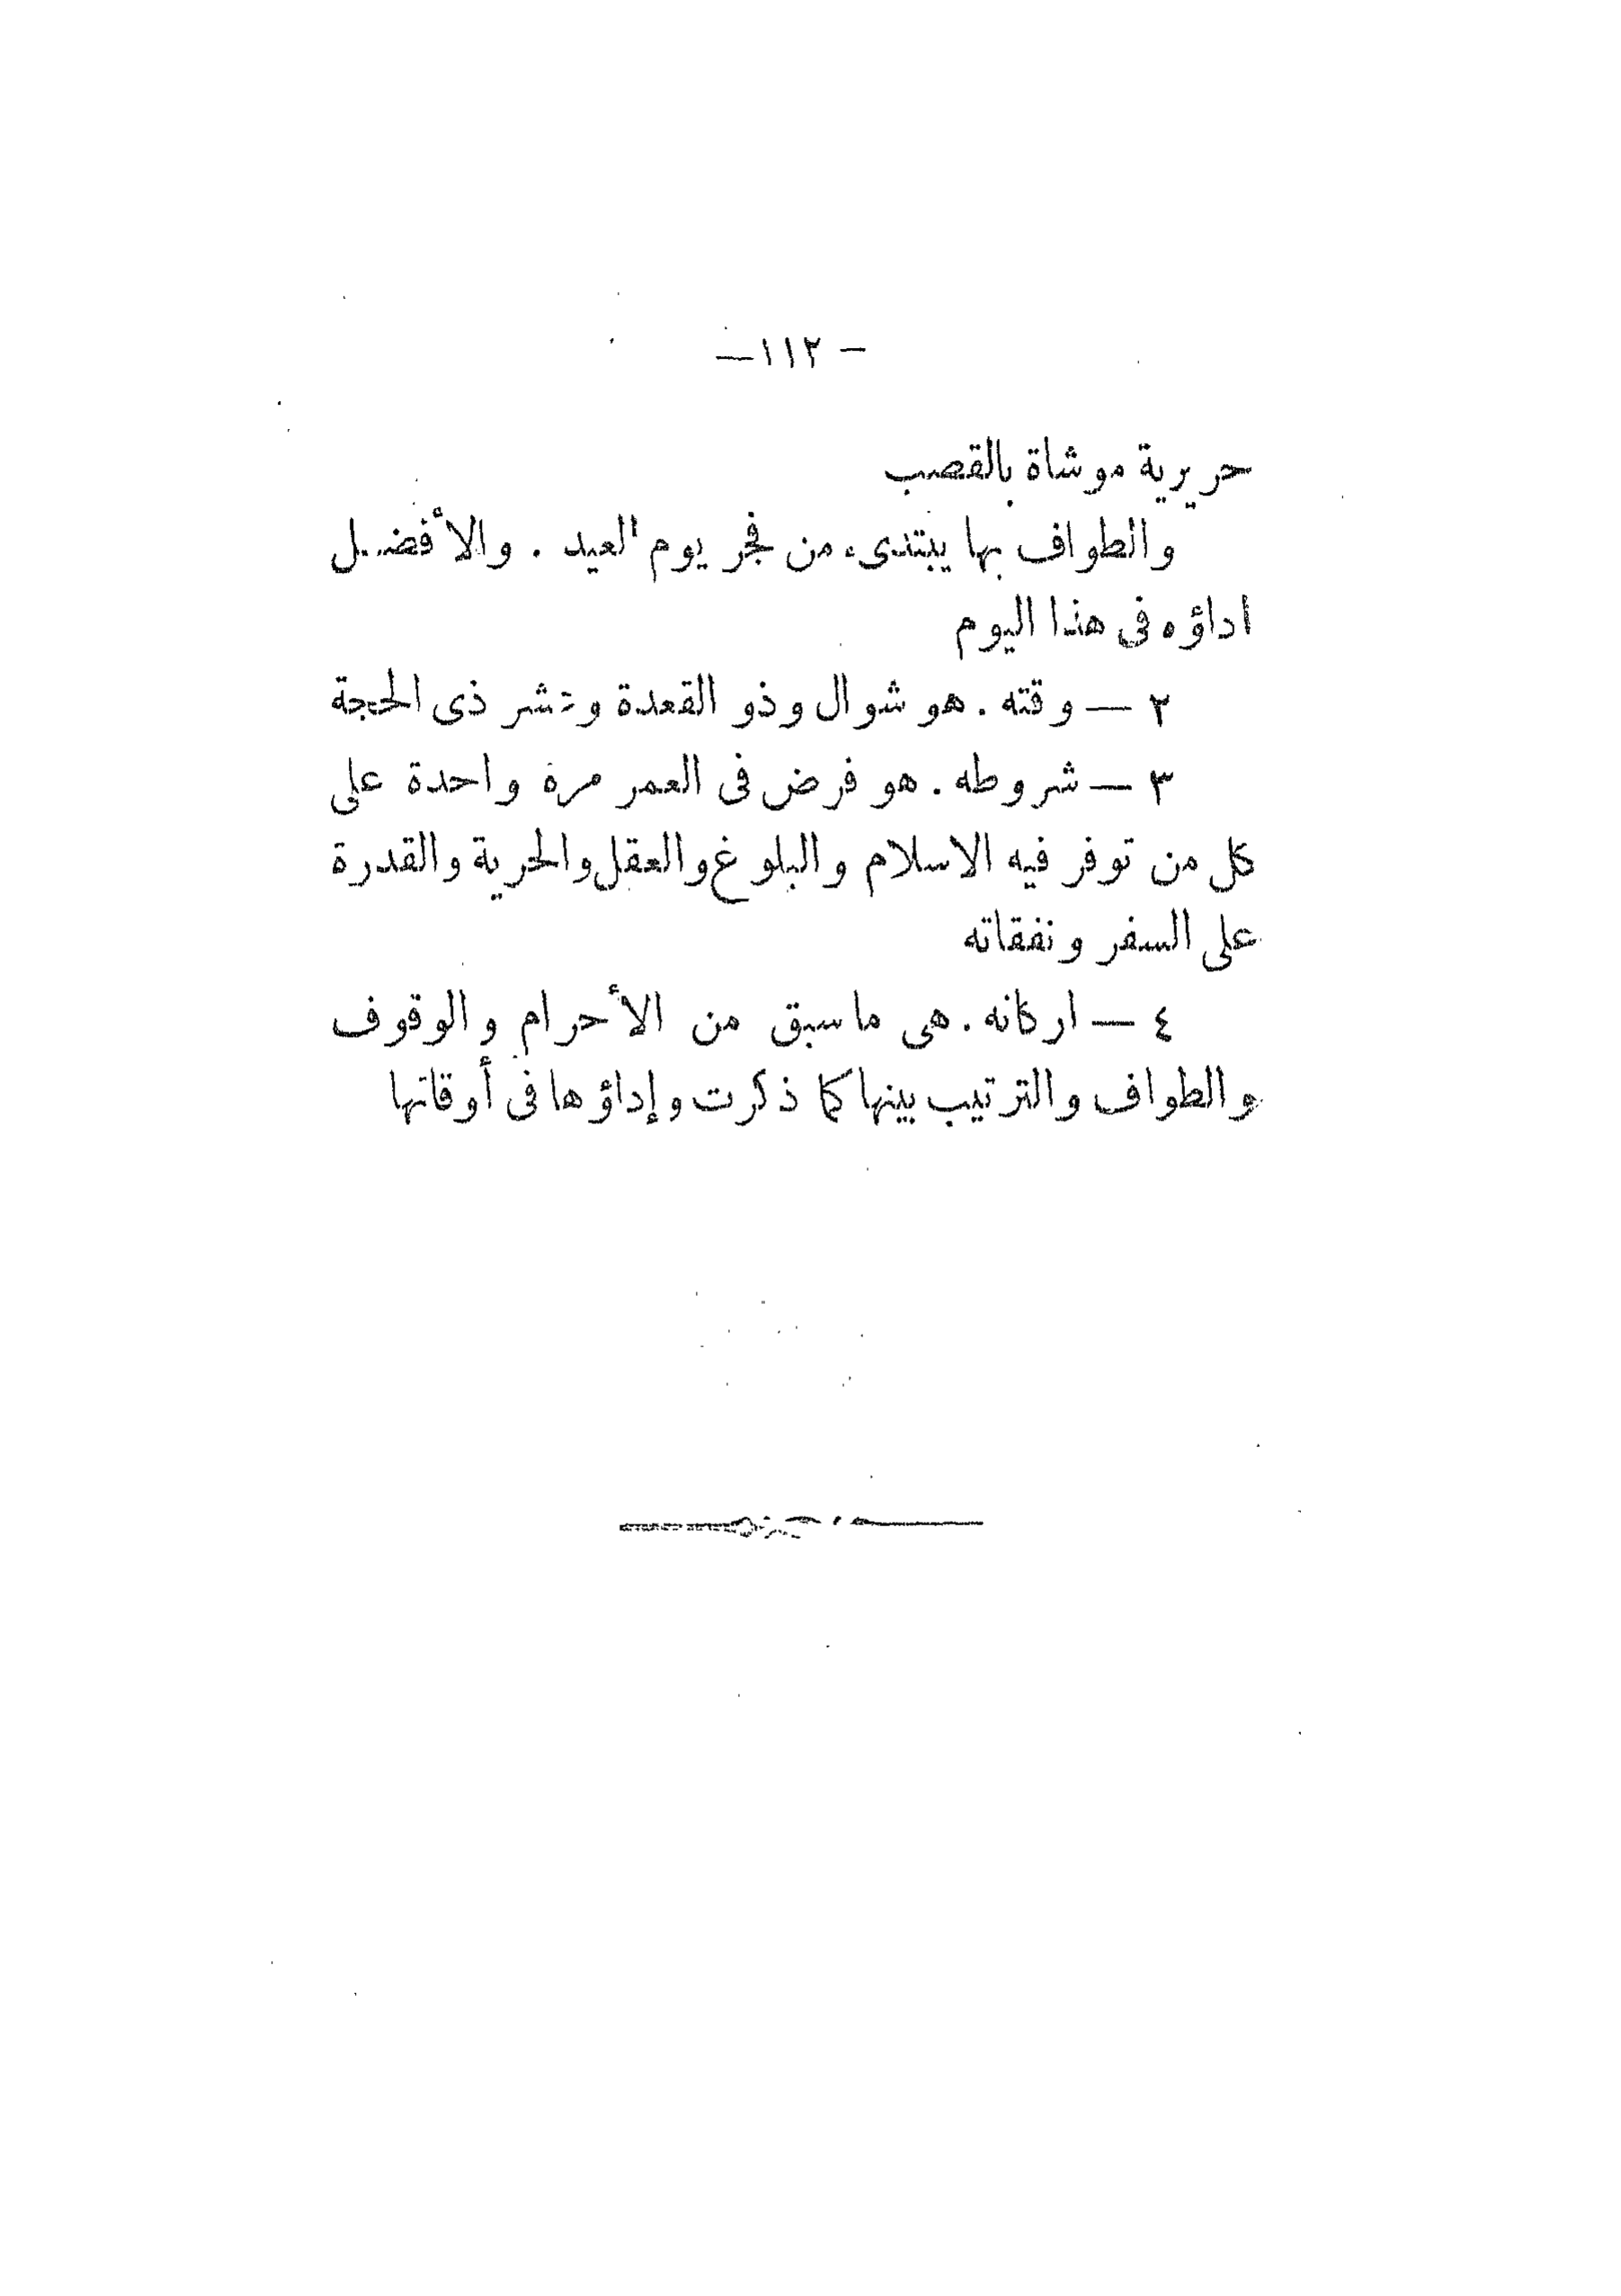 — ١١٢ —
حريرية موشاة بالقصب
والطواف بها يبتدىء من فجر يوم العيد . والأفضل
اداؤه فى هذا اليوم
٢ — وقته . هو شوال وذو القعدة وعشر ذى الحجة
٣ — شروطه . هو فرض فى العمر مرة واحدة على
كل من توفر فيه الاسلام والبلوغ والعقل والحرية والقدرة
على السفر ونفقاته
٤ — اركانه . هى ماسبق من الأحرام والوقوف
والطواف والترتيب بينها كما ذكرت وإداؤها فى أوقاتها